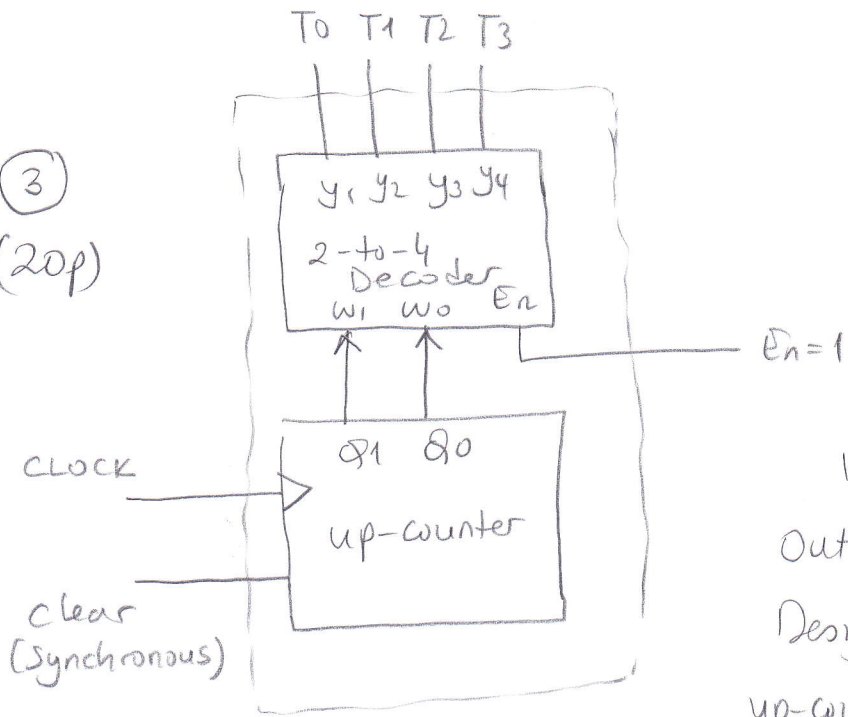 T0 T1 T2 T3
3
(20p)
y1 y2 y3 y4
2-to-4
Decoder
w1 w0 En
En=1
Q1 Q0
CLOCK
up-counter
Out
clear
(Synchronous)
up-cou